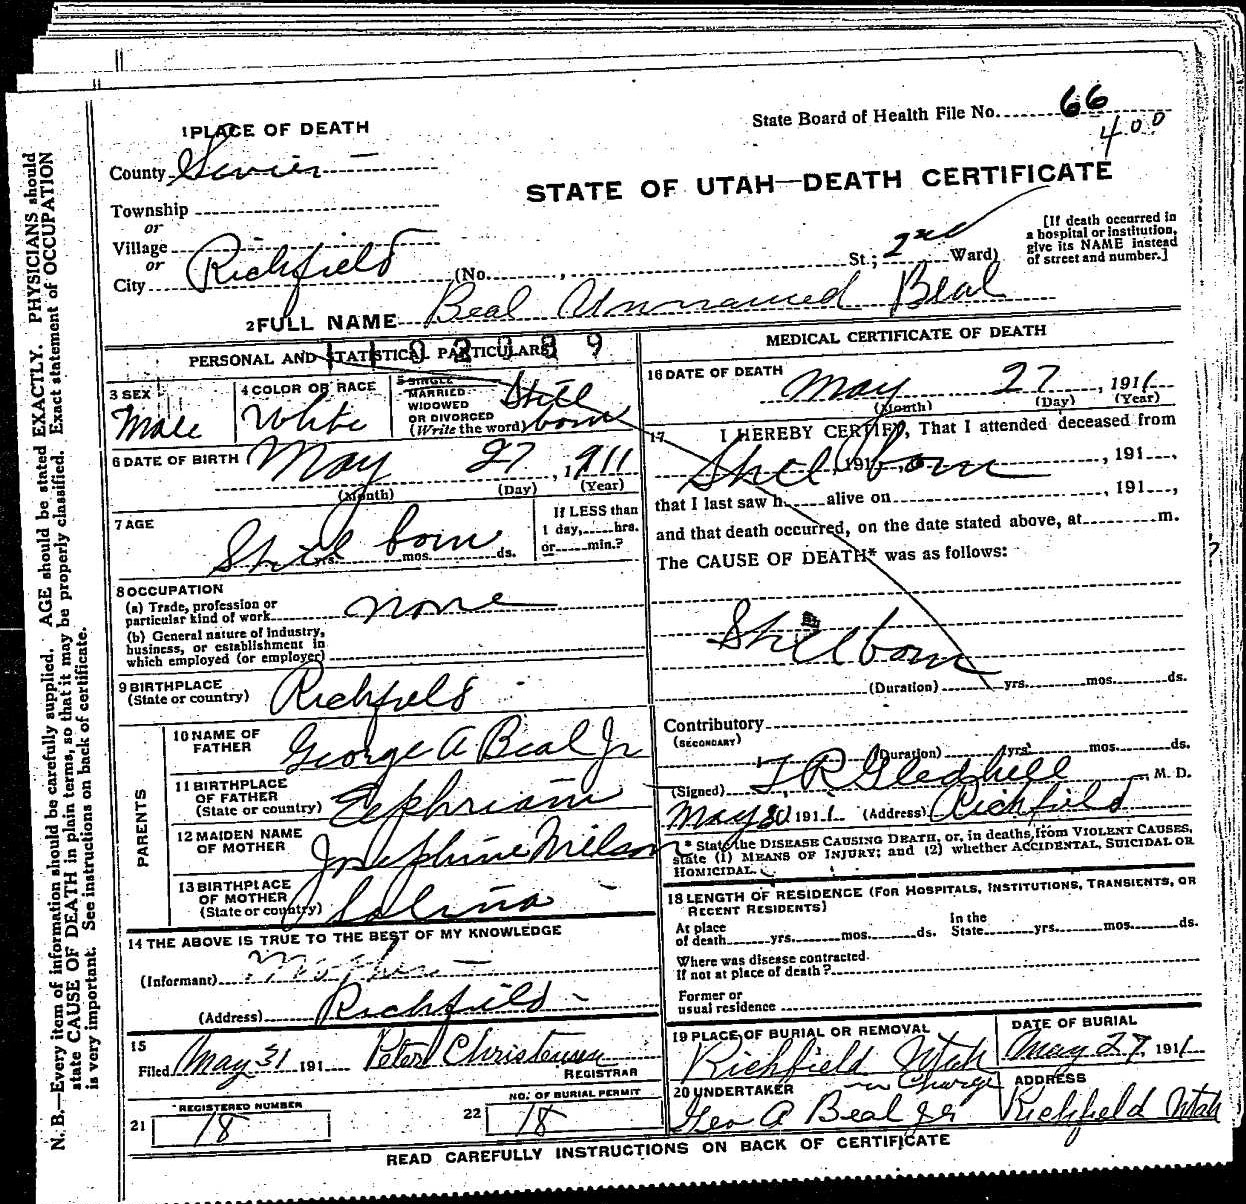 State Board of Health File No. 66
400
1 PLACE OF DEATH
County Sevier
STATE OF UTAH—DEATH CERTIFICATE
Township
or
Village
or
City Richfield (No. , St.; 2nd Ward)
[If death occurred in a hospital or institution, give its NAME instead of street and number.]
2 FULL NAME Beal Unnamed Beal
PERSONAL AND STATISTICAL PARTICULARS
3 SEX Male
4 COLOR OR RACE White
5 SINGLE MARRIED WIDOWED OR DIVORCED (Write the word) Still born
6 DATE OF BIRTH May 27, 1911
(Month) (Day) (Year)
7 AGE Still born yrs. mos. ds.
If LESS than 1 day, hrs. or min.?
8 OCCUPATION
(a) Trade, profession or particular kind of work none
(b) General nature of industry, business, or establishment in which employed (or employer)
9 BIRTHPLACE (State or country) Richfield
PARENTS
10 NAME OF FATHER George A Beal Jr
11 BIRTHPLACE OF FATHER (State or country) Ephriam
12 MAIDEN NAME OF MOTHER Josephine Nielson
13 BIRTHPLACE OF MOTHER (State or country) Salina
14 THE ABOVE IS TRUE TO THE BEST OF MY KNOWLEDGE
(Informant)
(Address) Richfield
15
Filed May 31 191 Peter Christensen
REGISTRAR
21 REGISTERED NUMBER 18
22 NO. OF BURIAL PERMIT 18
MEDICAL CERTIFICATE OF DEATH
16 DATE OF DEATH May 27, 1911
(Month) (Day) (Year)
17 I HEREBY CERTIFY, That I attended deceased from
Still born 191 , 191 ,
that I last saw h alive on , 191 ,
and that death occurred, on the date stated above, at m.
The CAUSE OF DEATH* was as follows:
Stillborn
(Duration) yrs. mos. ds.
Contributory
(SECONDARY)
(Duration) yrs. mos. ds.
(Signed) T R Gledhill M. D.
May 30 1911 (Address) Richfield
* State the DISEASE CAUSING DEATH, or, in deaths from VIOLENT CAUSES, state (1) MEANS OF INJURY; and (2) whether ACCIDENTAL, SUICIDAL OR HOMICIDAL.
18 LENGTH OF RESIDENCE (FOR HOSPITALS, INSTITUTIONS, TRANSIENTS, OR RECENT RESIDENTS)
At place of death yrs. mos. ds. In the State yrs. mos. ds.
Where was disease contracted.
If not at place of death?
Former or usual residence
19 PLACE OF BURIAL OR REMOVAL Richfield Utah
DATE OF BURIAL May 27, 1911
20 UNDERTAKER in Charge Geo A Beal Jr
ADDRESS Richfield Utah
READ CAREFULLY INSTRUCTIONS ON BACK OF CERTIFICATE
N. B.—Every item of information should be carefully supplied. AGE should be stated EXACTLY. PHYSICIANS should
state CAUSE OF DEATH in plain terms, so that it may be properly classified. Exact statement of OCCUPATION
is very important. See instructions on back of certificate.